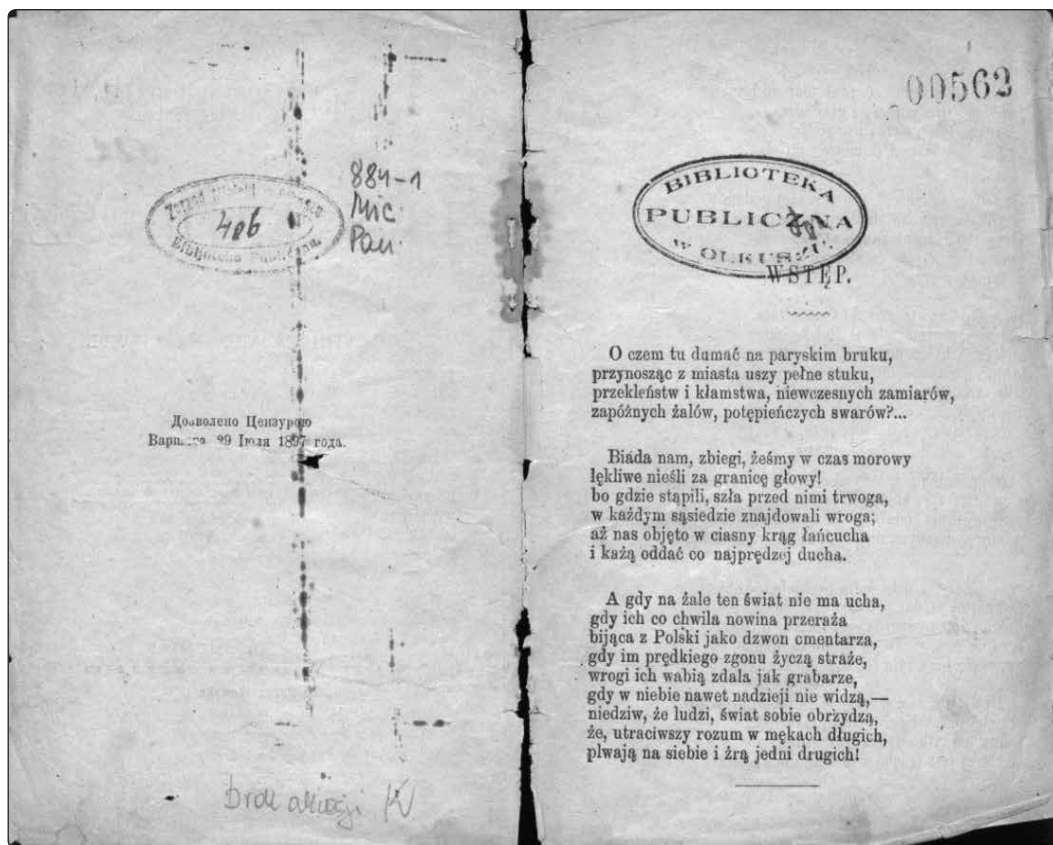 406
Biblioteka Publiczna
884-1
Mic.
Pan.
Дозволено Цензурою
29 Іюля 1897 года.
brak akcesji K
00562
BIBLIOTEKA
PUBLICZNA
w OLKUSZU
WSTĘP.
O czem tu dumać na paryskim bruku,
przynosząc z miasta uszy pełne stuku,
przekleństw i kłamstwa, niewczesnych zamiarów,
zapóżnych żalów, potępieńczych swarów?...
Biada nam, zbiegi, żeśmy w czas morowy
lękliwe nieśli za granicę głowy!
bo gdzie stąpili, szła przed nimi trwoga,
w każdym sąsiedzie znajdowali wroga;
aż nas objęto w ciasny krąg łańcucha
i każą oddać co najprędzej ducha.
A gdy na żale ten świat nie ma ucha,
gdy ich co chwila nowina przeraża
bijąca z Polski jako dzwon cmentarza,
gdy im prędkiego zgonu życzą straże,
wrogi ich wabią zdala jak grabarze,
gdy w niebie nawet nadzieji nie widzą,—
niedziw, że ludzi, świat sobie obrzydzą,
że, utraciwszy rozum w mękach długich,
plwają na siebie i żrą jedni drugich!